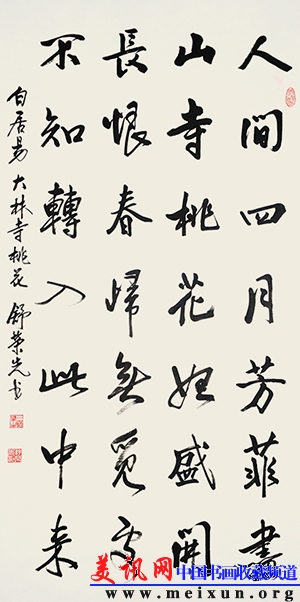 人間四月芳菲盡
山寺桃花始盛開
長恨春歸無覓處
不知轉入此中来
白居易 大林寺桃花 舒荣先书
美讯网 中国书画收藏频道
www.meixun.org